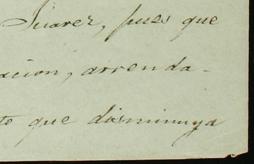 Juarez, pues que
acion, arrenda-
te que disminuya